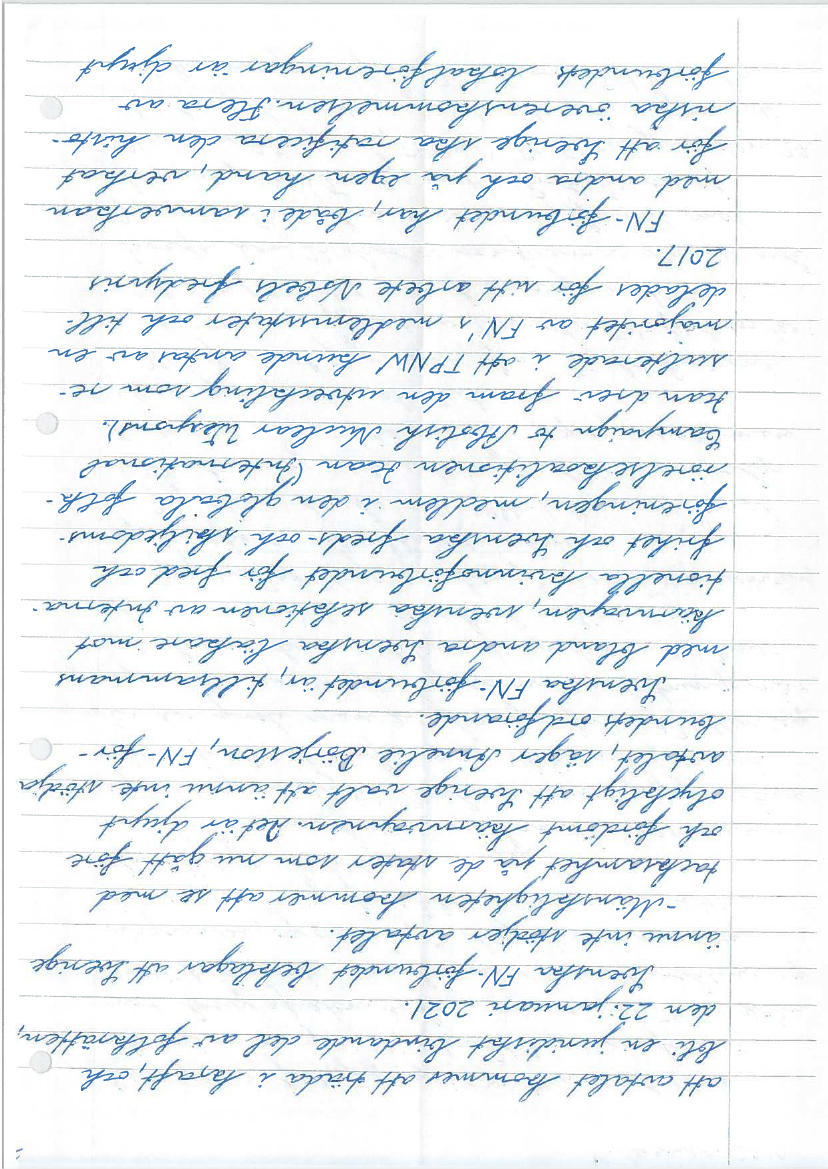 att avtalet kommer att träda i kraft, och
bli en juridiskt bindande del av folkrätten,
den 22:januari 2021.
Svenska FN-förbundet beklagar att Sverige
ännu inte stödjer avtalet.
-Mänskligheten kommer att se med
tacksamhet på de stater som nu gått före
och fördömt kärnvapnen. Det är djupt
olyckligt att Sverige valt att ännu inte stödja
avtalet, säger Annelie Börjesson, FN-för-
bundets ordförande.
Svenska FN-förbundet är, tillsammans
med bland andra Svenska läkare mot
kärnvapen, svenska sektionen av Interna-
tionella kvinnoförbundet för fred och
frihet och Svenska freds- och skiljedoms-
föreningen, medlem i den globala folk-
rörelsekoalitionen Ican (International
Campaign to Abolish Nuclear Weapons).
Ican drev fram den utveckling som re-
sulterade i att TPNW kunde antas av en
majoritet av FN's medlemsstater och till-
delades för sitt arbete Nobels fredspris
2017.
FN-förbundet har, både i samverkan
med andra och på egen hand, verkat
för att Sverige ska ratificera den histo-
riska överenskommelsen. Flera av
förbundets lokalföreningar är djupt